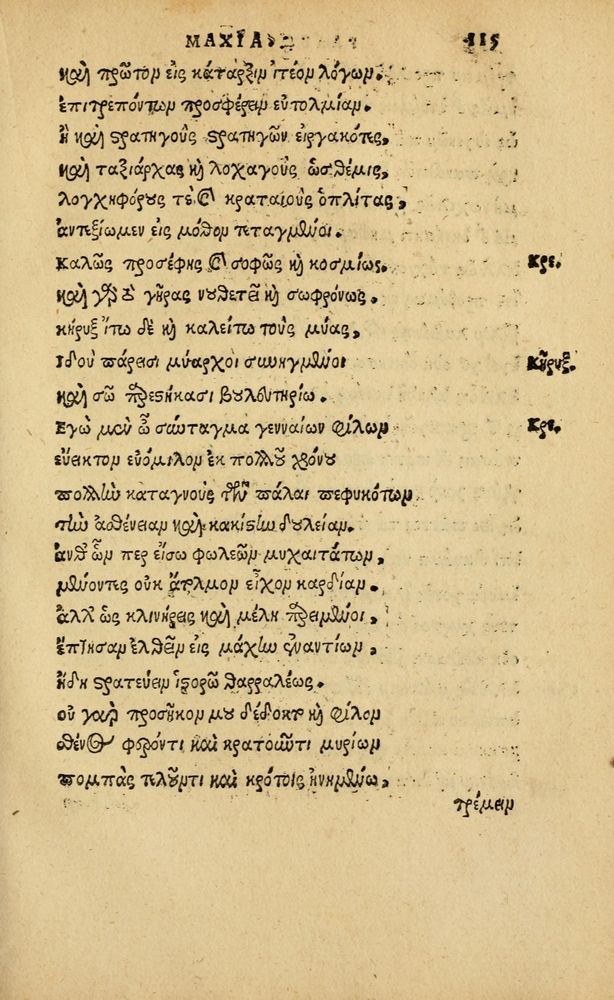 ΜΑΧΙΑ. 115
καὶ πρῶτον εἰς κάταρξιν ἰτέον λόγων.
ἐπιτρεπόντων προσφέρειν εὐτολμίαν.
ἢ καὶ στρατηγοὺς στρατηγῶν εἰργακότες,
καὶ ταξιάρχας καὶ λοχαγοὺς ὡς θέμις,
λογχηφόρους τε καὶ κραταιοὺς ὁπλίτας,
ἀντεξίωμεν εἰς μόθον τεταγμένοι.
Καλῶς προσέφης καὶ σοφῶς καὶ κοσμίως. Κρε.
καὶ γὰρ τὸ γῆρας νουθετεῖ καὶ σωφρόνως.
κήρυξ ἴτω δὲ καὶ καλείτω τοὺς μύας,
Ιδοὺ πάρεισι μύαρχοι συνηγμένοι Κῆρυξ.
καὶ σῷ παρεστήκασι βουλευτηρίῳ.
Εγὼ μὲν ὦ σύνταγμα γενναίων φίλων Κρε.
εὔεικτον εὐόμιλον ἐκ πολλοῦ χρόνου
πολλὴν καταγνοὺς τῶν πάλαι πεφυκότων
τὴν ἀσθένειαν καὶ κακίστην δουλείαν.
ἀνθ' ὧν περ εἴσω φωλεῶν μυχαιτάτων,
μένοντες οὐκ ἄτρεμον εἶχον καρδίαν.
ἀλλ' ὡς κλινήρεις καὶ μέλη παρειμένοι,
ἔπτησαν ἐλθεῖν εἰς μάχην ἐναντίων,
ἤδη στρατεύειν ἱστορῶ θαρραλέως.
οὐ γὰρ προσῆκον μου δέδοκται καὶ φίλον
σθένος φέροντι καὶ κρατοῦντι μυρίων
πομπὰς πλοῦντι καὶ κρότοις ἠνημένῳ,
τρέμειν